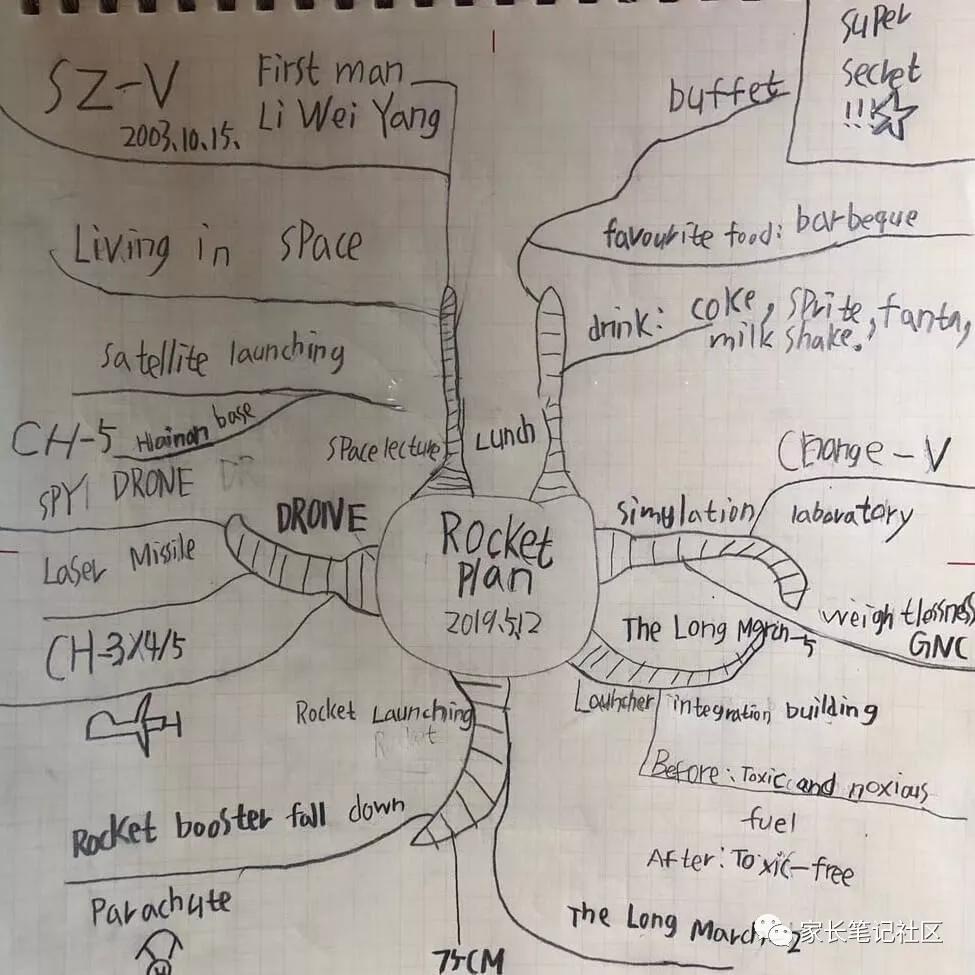 SZ-V
2003.10.15.
First man
Li Wei Yang
Living in space
satellite launching
Hainan base
space lecture
buffet
super
secret
!!!
favourite food: barbeque
drink: coke, sprite, fanta,
milk shake.
Lunch
CH-5
SPY DRONE
DRONE
Laser Missile
CH-3/4/5
Rocket
plan
2019.5.12
simulation
Change-V
laboratory
weightlessness
GNC
The Long March-5
Launcher integration building
Before: Toxic and noxious
fuel
After: Toxic-free
Rocket Launching
Rocket
Rocket booster fall down
Parachute
75CM
The Long March 2
家长笔记社区